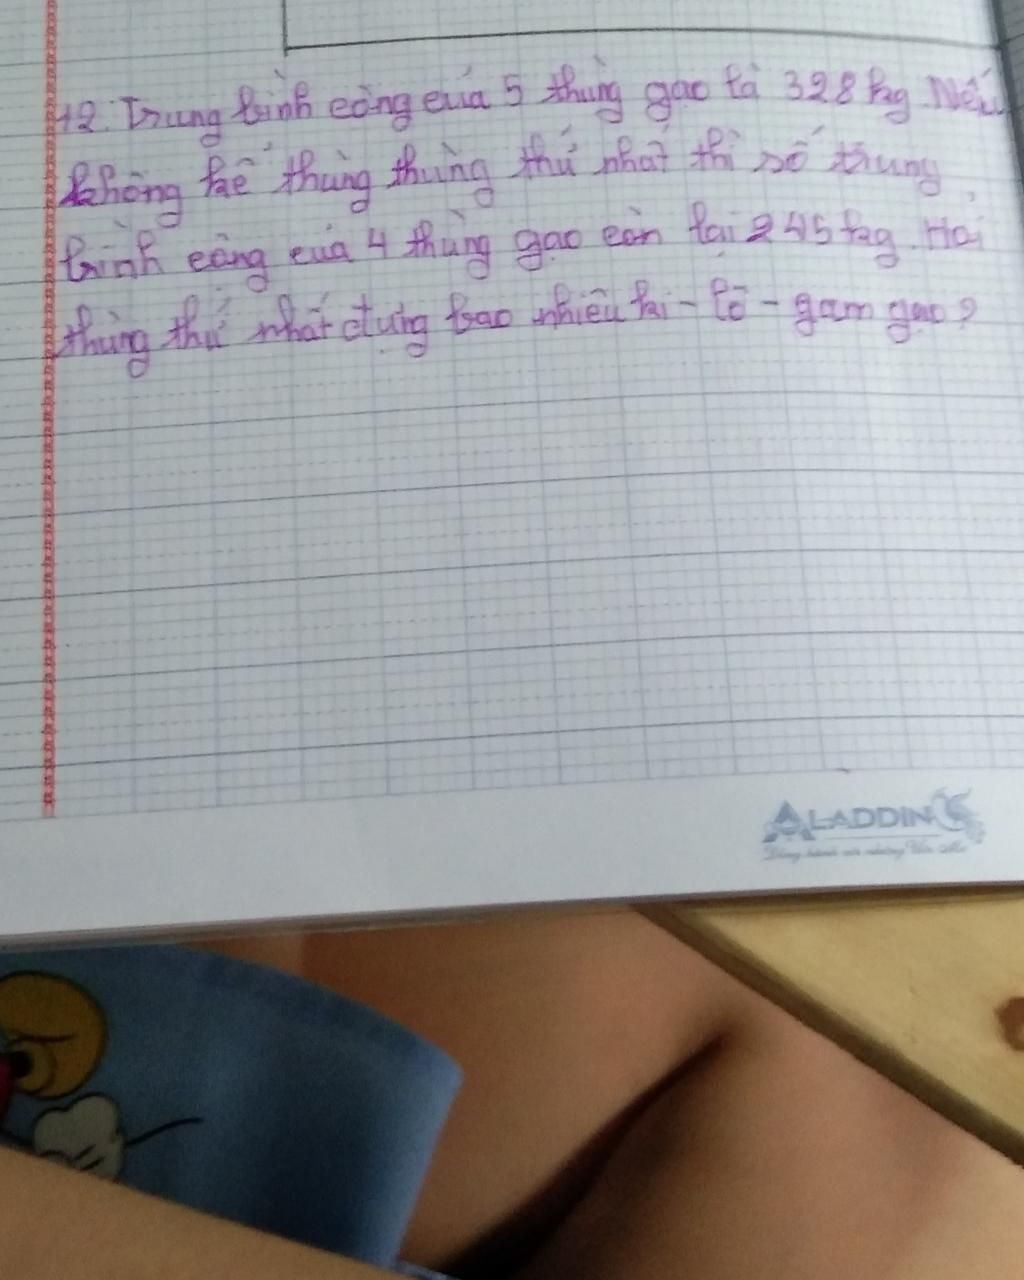 12. Trung bình cộng của 5 thùng gạo là 328 kg. Nếu
không kể thùng thùng thứ nhất thì số trung
bình cộng của 4 thùng gạo còn lại 245 kg. Hỏi
thùng thứ nhất đựng bao nhiêu ki-lô-gam gạo?
ALADDIN